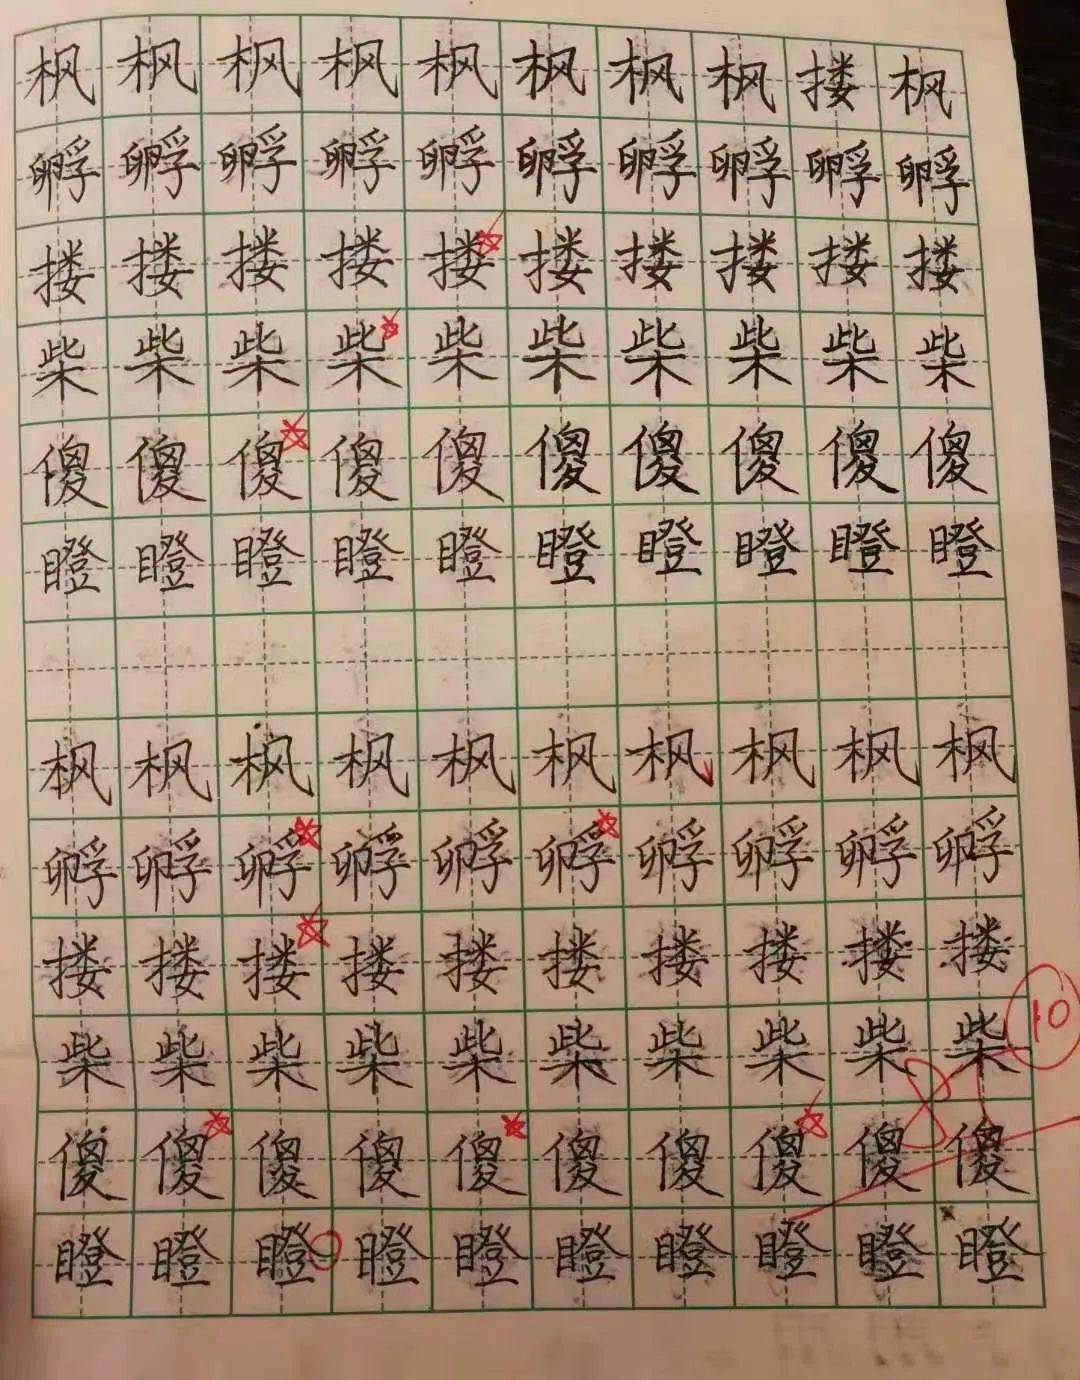 枫枫枫枫枫枫枫枫搂枫
孵孵孵孵孵孵孵孵孵孵
搂搂搂搂搂搂搂搂搂搂
柴柴柴柴柴柴柴柴柴柴
傻傻傻傻傻傻傻傻傻傻
瞪瞪瞪瞪瞪瞪瞪瞪瞪瞪
枫枫枫枫枫枫枫枫枫枫
孵孵孵孵孵孵孵孵孵孵
搂搂搂搂搂搂搂搂搂搂
柴柴柴柴柴柴柴柴柴柴
10
傻傻傻傻傻傻傻傻傻傻
瞪瞪瞪瞪瞪瞪瞪瞪瞪瞪